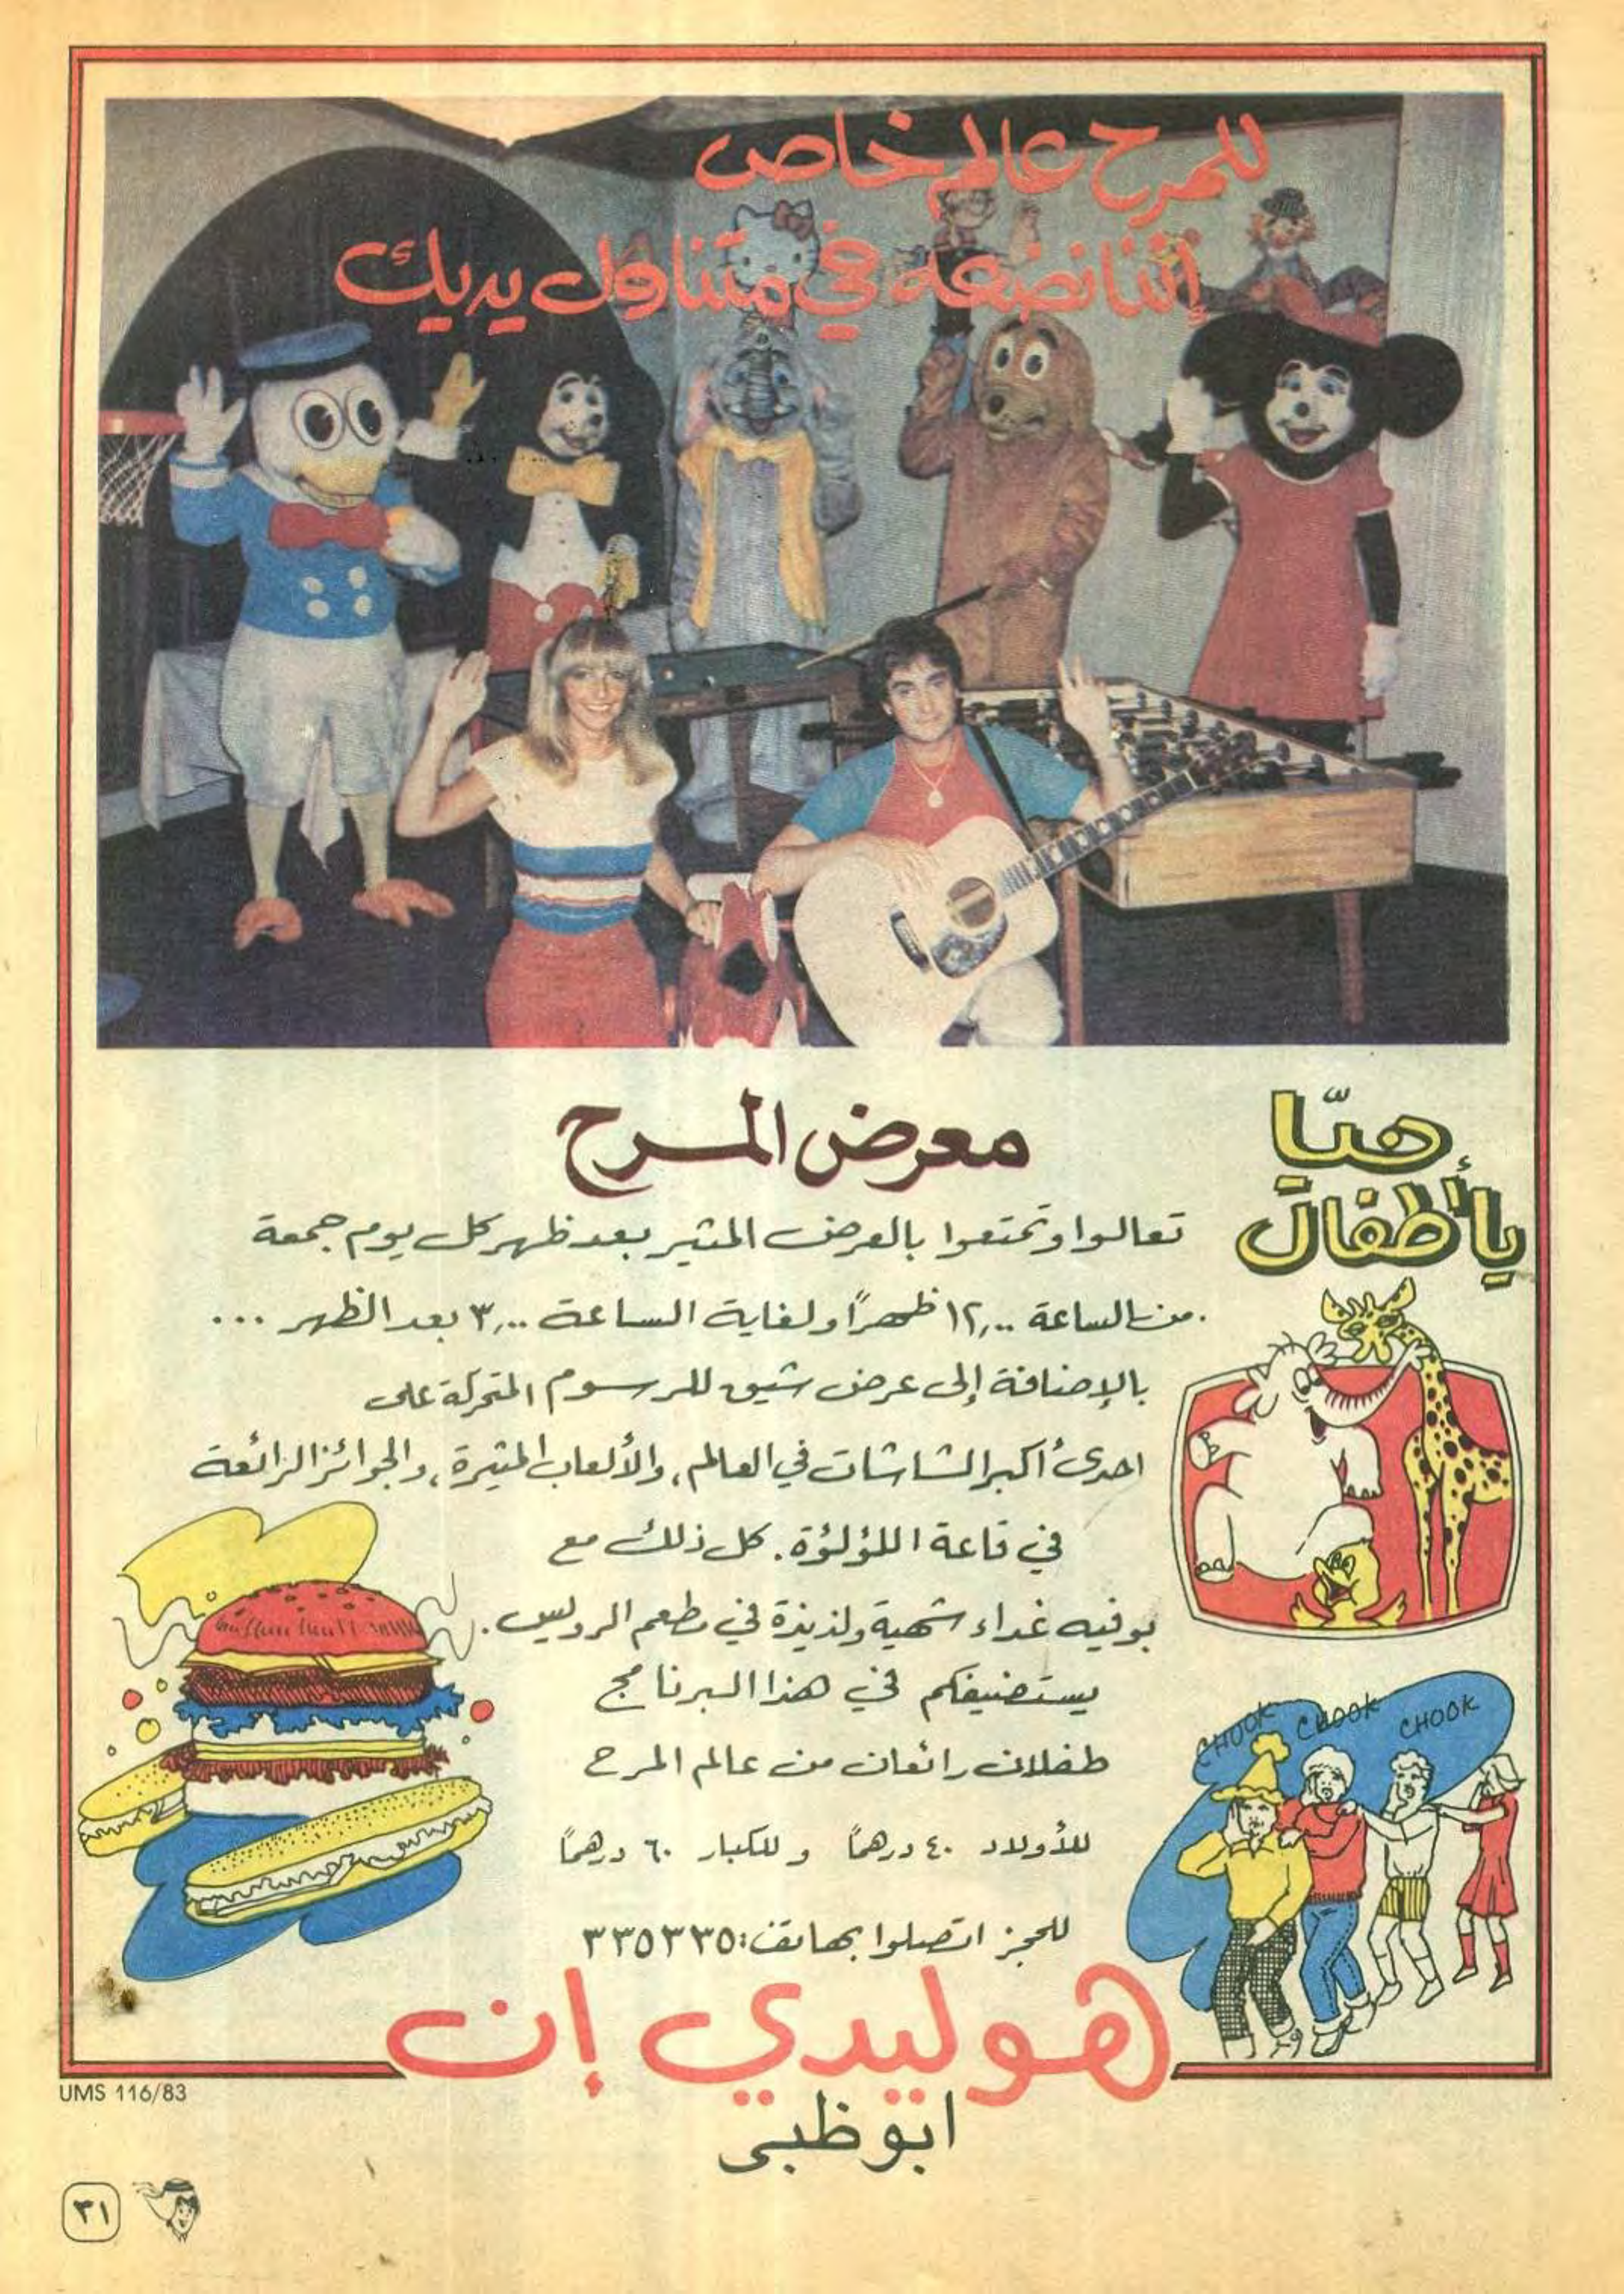 للمرح عالم خاص
إننا نضعه في متناول يديك
هيّا
يا أطفال
معرض المرح
تعالوا وتمتعوا بالعرض المثير بعد ظهر كل يوم جمعة
من الساعة ١٢,٠٠ ظهراً ولغاية الساعة ٣,٠٠ بعد الظهر ...
بالإضافة إلى عرض شيق للرسوم المتحركة على
احدى أكبر الشاشات في العالم، والألعاب المثيرة، والجوائز الرائعة
في قاعة اللؤلؤة. كل ذلك مع
بوفيه غداء شهية ولذيذة في مطعم الرويس.
يستضيفكم في هذا البرنامج
طفلان رائعان من عالم المرح
للأولاد ٤٠ درهماً وللكبار ٦٠ درهماً
للحجز اتصلوا بهاتف: ٣٣٥٣٣٥
CHOOK CHOOK CHOOK
هوليدي إن
ابوظبي
UMS 116/83
٣١